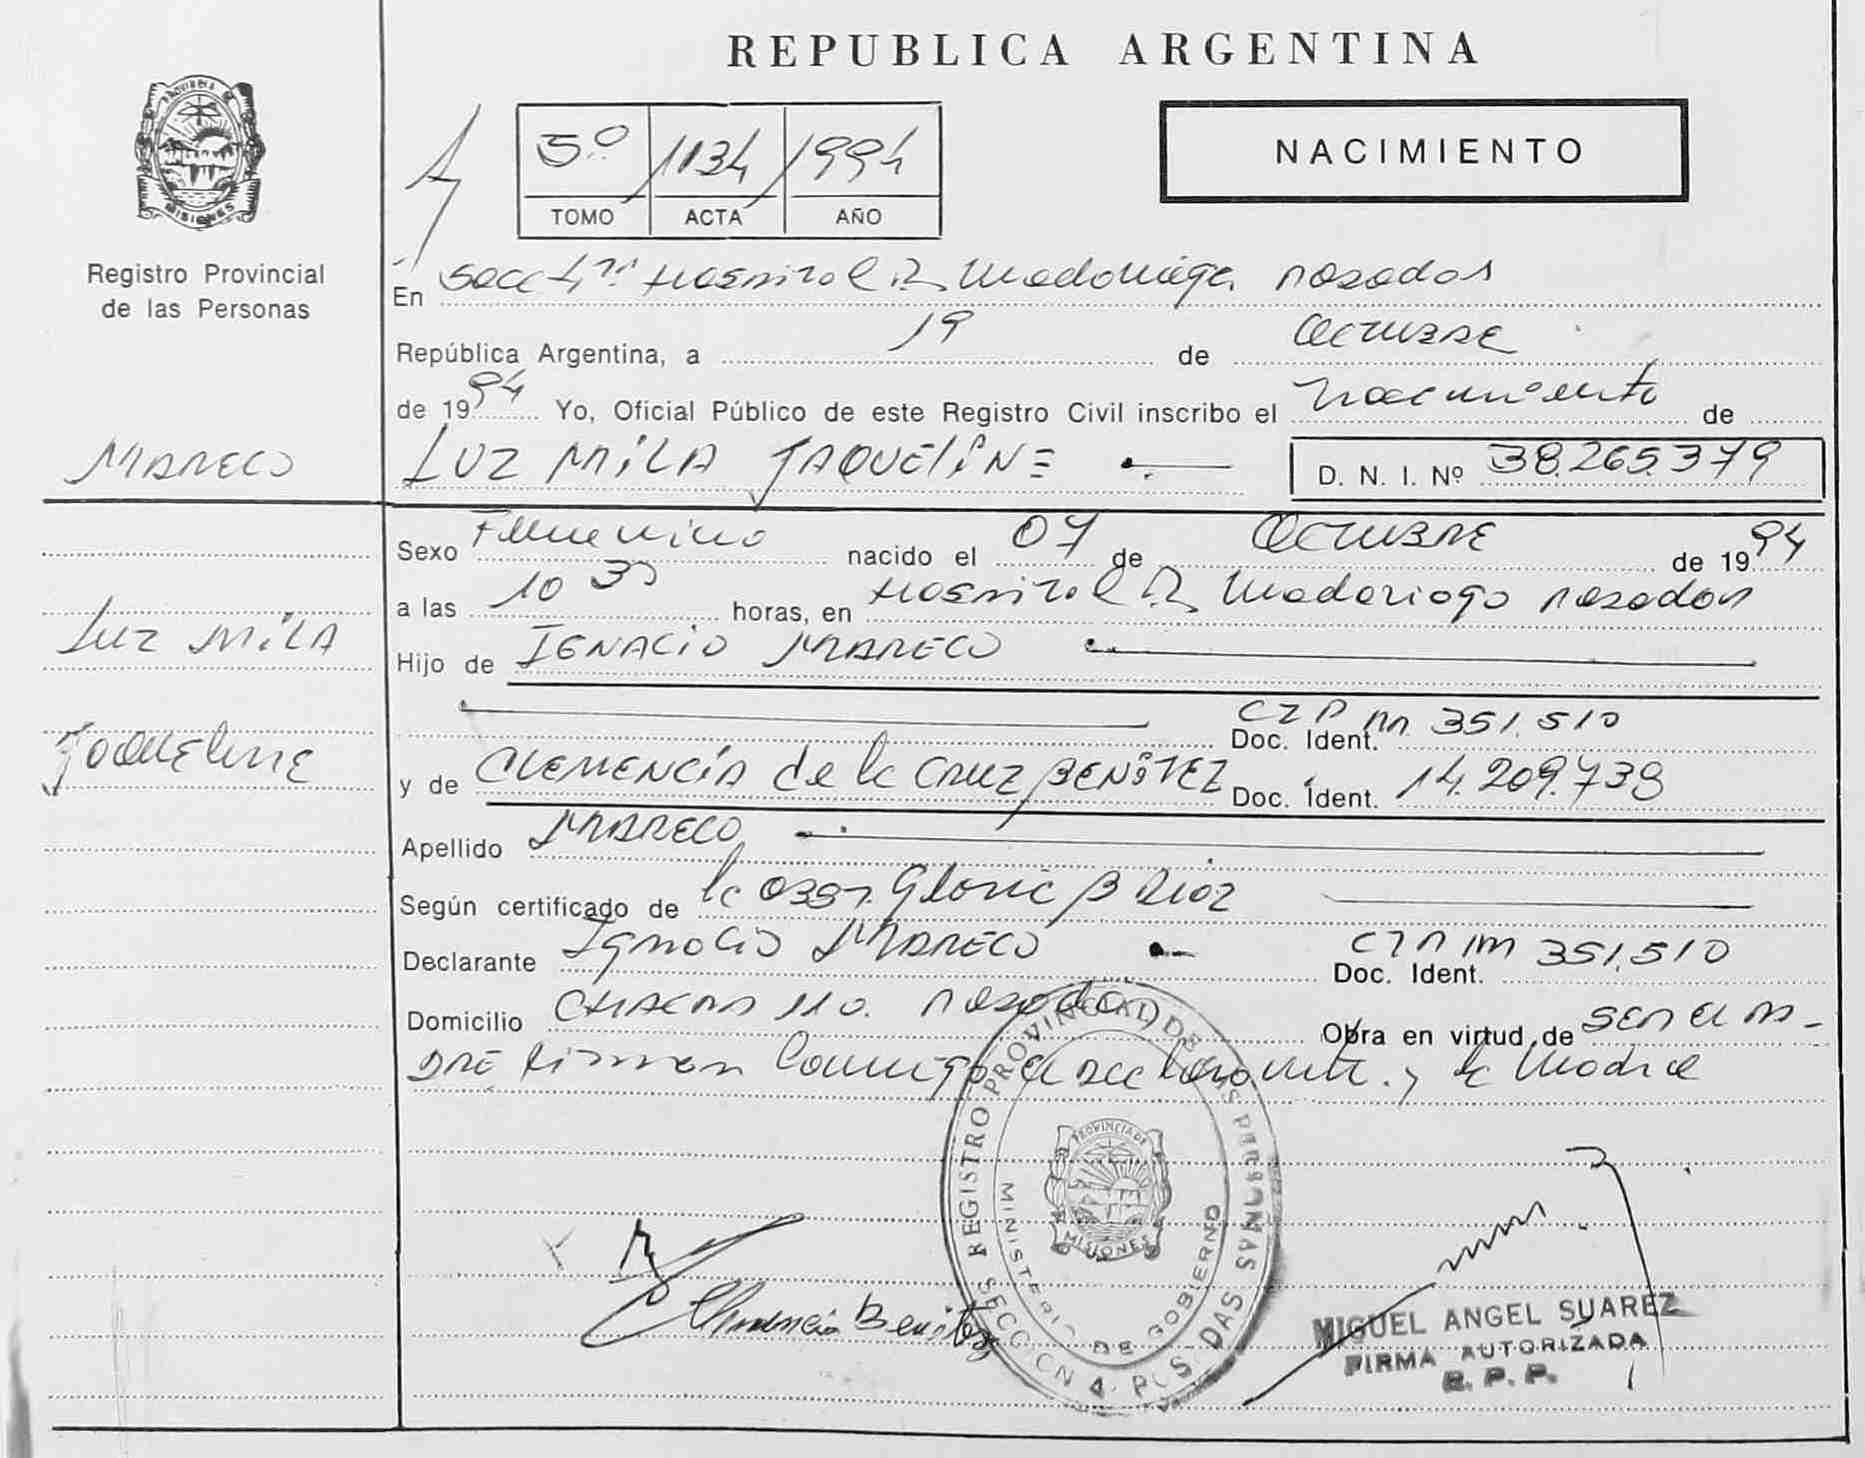 REPUBLICA ARGENTINA
PROVINCIA DE
MISIONES
Registro Provincial
de las Personas
5º 1134 1994
TOMO ACTA AÑO
NACIMIENTO
En Secc 4ta Hospital R. Madariaga Posadas
República Argentina, a 19 de Octubre
de 1994 Yo, Oficial Público de este Registro Civil inscribo el nacimiento de
MARECO
LUZ MILA JAQUELINE
D. N. I. Nº 38.265.379
Sexo Femenino nacido el 07 de Octubre de 1994
a las 10 30 horas, en Hospital R. Madariaga Posadas
Luz MILA
Hijo de IGNACIO MARECO
Doc. Ident. 351.510
Jaqueline
y de CLEMENCIA de la CRUZ BENITEZ Doc. Ident. 14.209.738
Apellido MARECO
Según certificado de la Obst. Gloria B Diaz
Declarante Ignacio MARECO Doc. Ident. 351.510
Domicilio CHACRA 110. Posadas Obra en virtud de ser el PA-
DRE firman conmigo el declarante y la Madre
REGISTRO PROVINCIAL DE LAS PERSONAS
MINISTERIO DE GOBIERNO
PROVINCIA DE
MISIONES
SECCION 4 POSADAS
Clemencia Benitez
MIGUEL ANGEL SUAREZ
FIRMA AUTORIZADA
R. P. P.